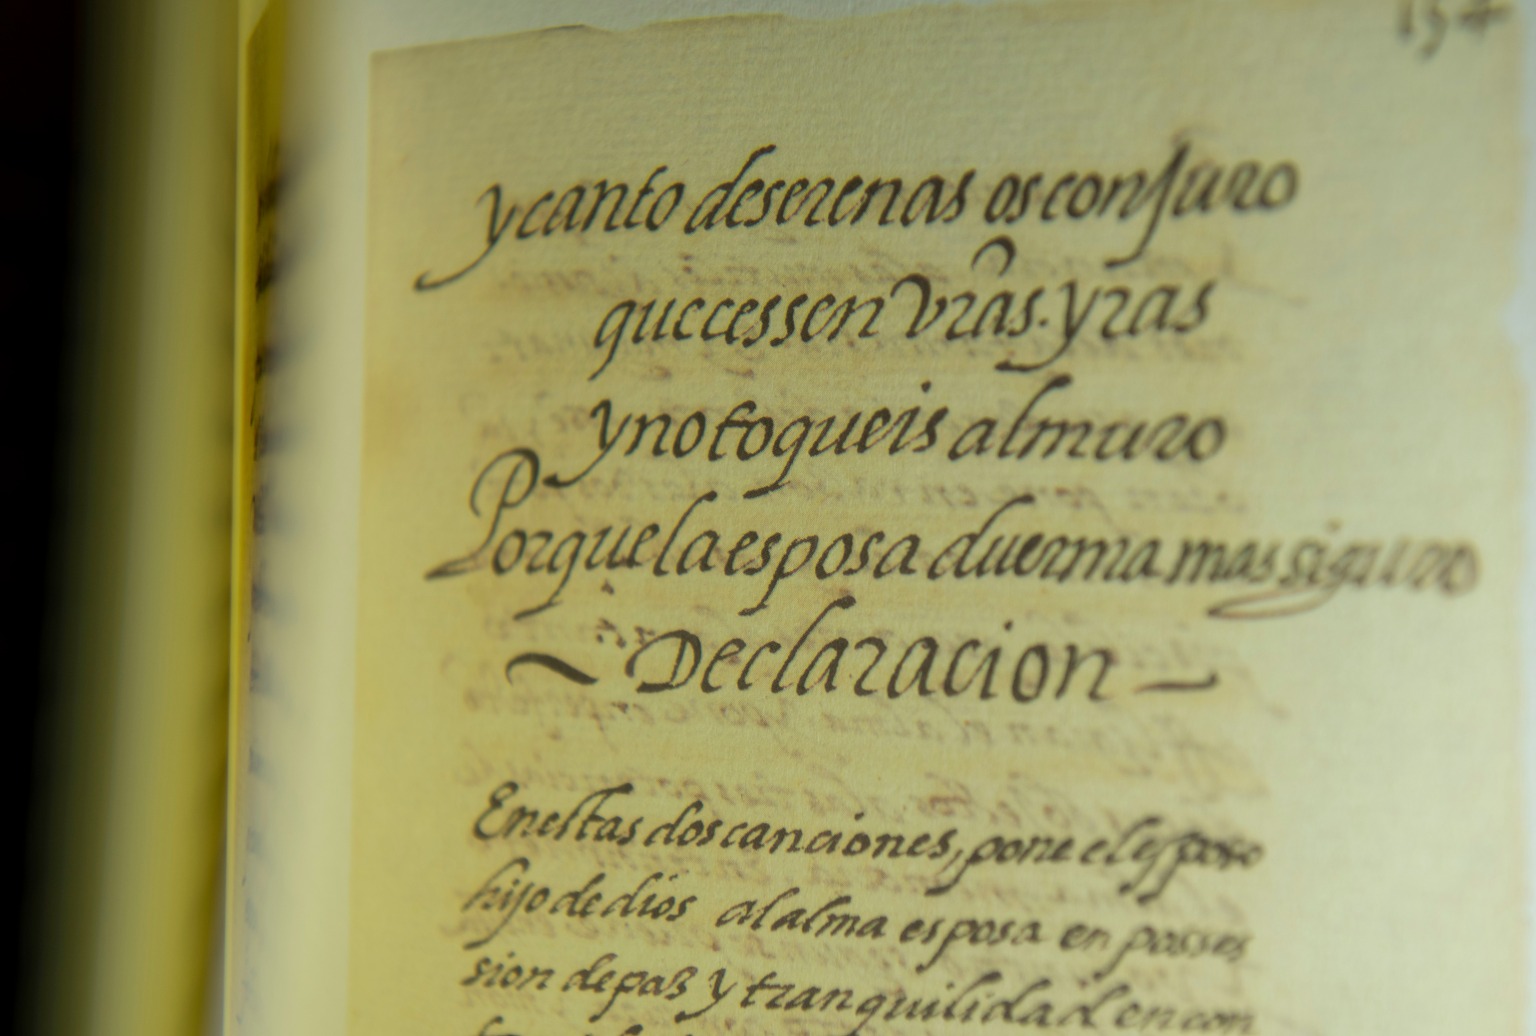 154
y canto de serenas os conjuro
que cessen vr̃as. yras
y no toqueis al muro
Porque la esposa duerma mas siguro
~ Declaracion –
En estas dos canciones, pone el esposo
hijo de dios al alma esposa en posses
sion de paz y tranquilidad en con